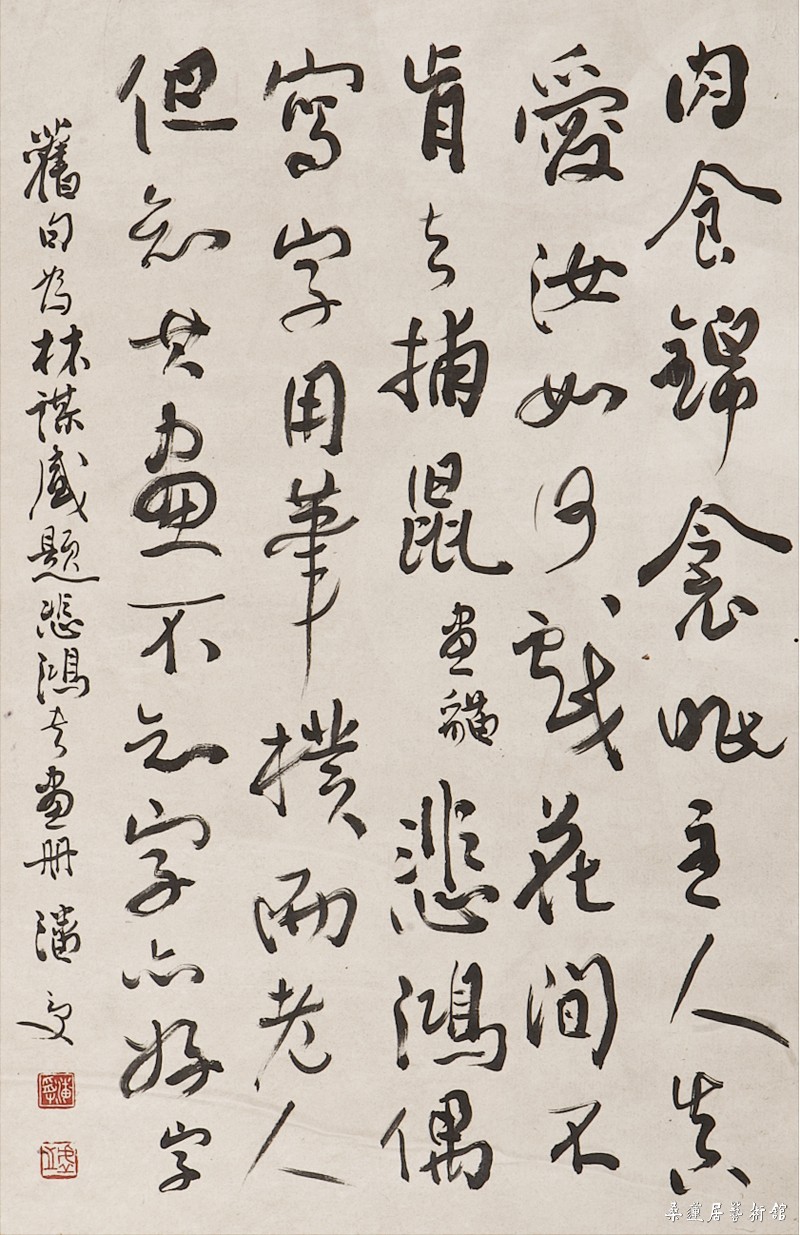 肉食錦衾眠主人真
愛汝如何戲花間不
肯去捕鼠 畫貓 悲鴻偶
寫字用筆樸而老人
但知其畫不知字亦好 字
舊句為林謀盛題悲鴻書畫册 潘受
桑蓮居藝術館